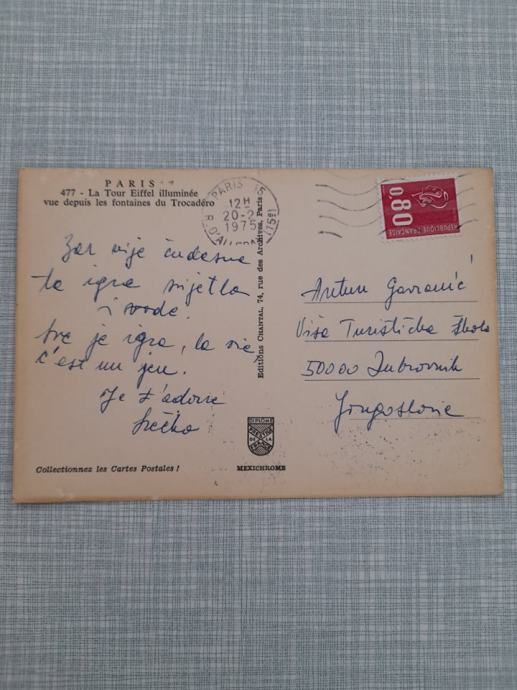 PARIS
477 - La Tour Eiffel illuminée
vue depuis les fontaines du Trocadéro
PARIS 15
12H
20-2
1975
(15e)
0,80
REPUBLIQUE FRANÇAISE
Zar nije čudesna
ta igra svjetla
i vode.
Sve je igra, la vie
c'est un jeu.
Je t'adore
Srećko
Editions CHANTAL, 74, rue des Archives, Paris
Antun Gavranić
Viša Turistička Škola
50000 Dubrovnik
Yougoslavie
Collectionnez les Cartes Postales !
MEXICHROME